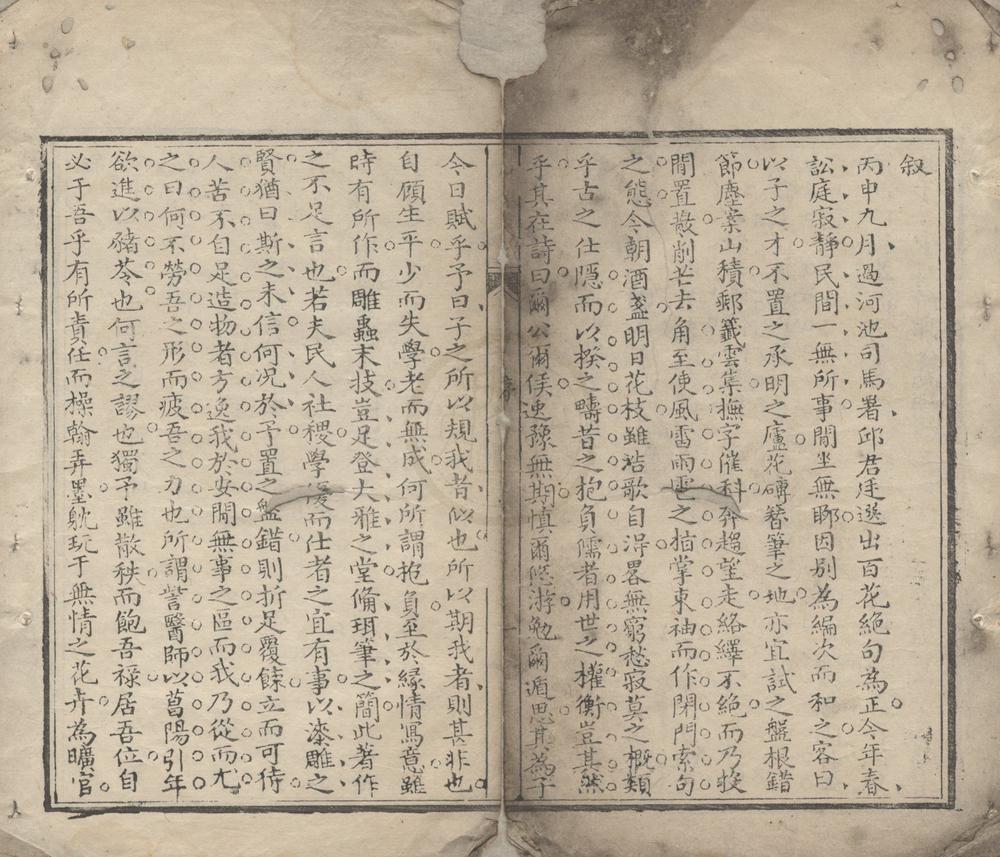 叙
丙申九月過河池司馬署邱君廷選出百花絕句為正今年春
訟庭寂靜民間一無所事閒坐無聊因别為編次而和之客曰
以子之才不置之承明之廬花磚簪筆之地亦宜試之盤根錯
節塵案山積郵籤雲集撫字催科奔趨望走絡繹不絕而乃投
閒置散削芒去角至使風雷雨雹之指掌東袖而作閉門索句
之態今朝酒盞明日花枝雖浩歌自得畧無窮愁寂莫之概類
乎古之仕隱而以揆之疇昔之抱負儒者用世之權衡豈其然
乎其在詩曰爾公爾侯逸豫無期慎爾悠游勉爾遁思其為子
序
一
今日賦乎予曰子之所以規我者似也所以期我者則甚非也
自顧生平少而失學老而無成何所謂抱負至於緣情寫意雖
時有所作而雕蟲末技豈足登大雅之堂備珥筆之簡此著作
之不足言也若夫民人社稷學優而仕者之宜有事以漆雕之
賢猶曰斯之未信何况於予置之盤錯則折足覆餗立而可待
人苦不自足造物者方逸我於安閒無事之區而我乃從而尤
之曰何不勞吾之形而疲吾之力也所謂訾醫師以菖陽引年
欲進以豨苓也何言之謬也獨予雖散秩而飽吾禄居吾位自
必于吾乎有所責任而操翰弄墨躭玩于無情之花卉為曠官